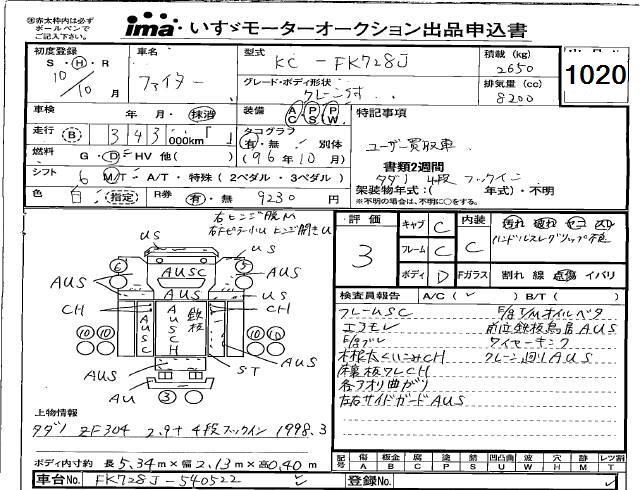 ※赤太枠内は必ず
ボールペンで
ご記入下さい。
ima いすゞモーターオークション出品申込書
初度登録
S・H・R
10/10月
車名
ファイター
型式
KC-FK728J
グレード・ボディ形状
クレーン付
積載(kg)
2650
排気量(cc)
8200
1020
車検 年 月・抹消
装備 AC・PS・PW
走行 B 343 000km「 」
タコグラフ
有・無 別体
(96年10月)
燃料 G・D・HV 他( )
シフト 6 M/T・A/T・特殊(2ペダル・3ペダル)
色 白 指定 R券 有・無 9230円
特記事項
ユーザー買取車
書類2週間
タダノ 4段 フックイン
架装物年式:( 年式)・不明
※不明の場合は、不明に○をする。
右ヒンジ脱M
右Fピラー小U ヒンジ開きU
US
US
6
5
AUSC
AUS
AUS
AUS
US
CH
CH
AUSC
AUSCH
鉄板
10 10
10 10
AUS
AUS
ST
AU
3
評価
3
キャブ C
フレーム C
ボディ D
内装
C
Fガラス
汚れ 破れ ヤニ スレ
ハンドルスレ グリップ不良
割れ 線 点傷 イバリ
検査員報告 A/C( ✓ ) B/T( )
フレームSC
エコモレ
F/gブレ
木根太くいこみCH
床板ワレCH
各アオリ曲がり
左右サイドガードAUS
F/g T/Mオイルベタ
前立鉄板鳥居AUS
ワイヤーキンク
クレーン廻りAUS
上物情報
タダノ ZF304 2.9t 4段フックイン 1998.3
ボディ内寸約 長5.34m×幅2.13m×高0.40m
記号 傷A 板金B 腐C 塗P 錆S 凹凸曲U 波W 穴H 跡M レンズ割T
車台No. FK728J-540522 ✓ 登録No. ✓